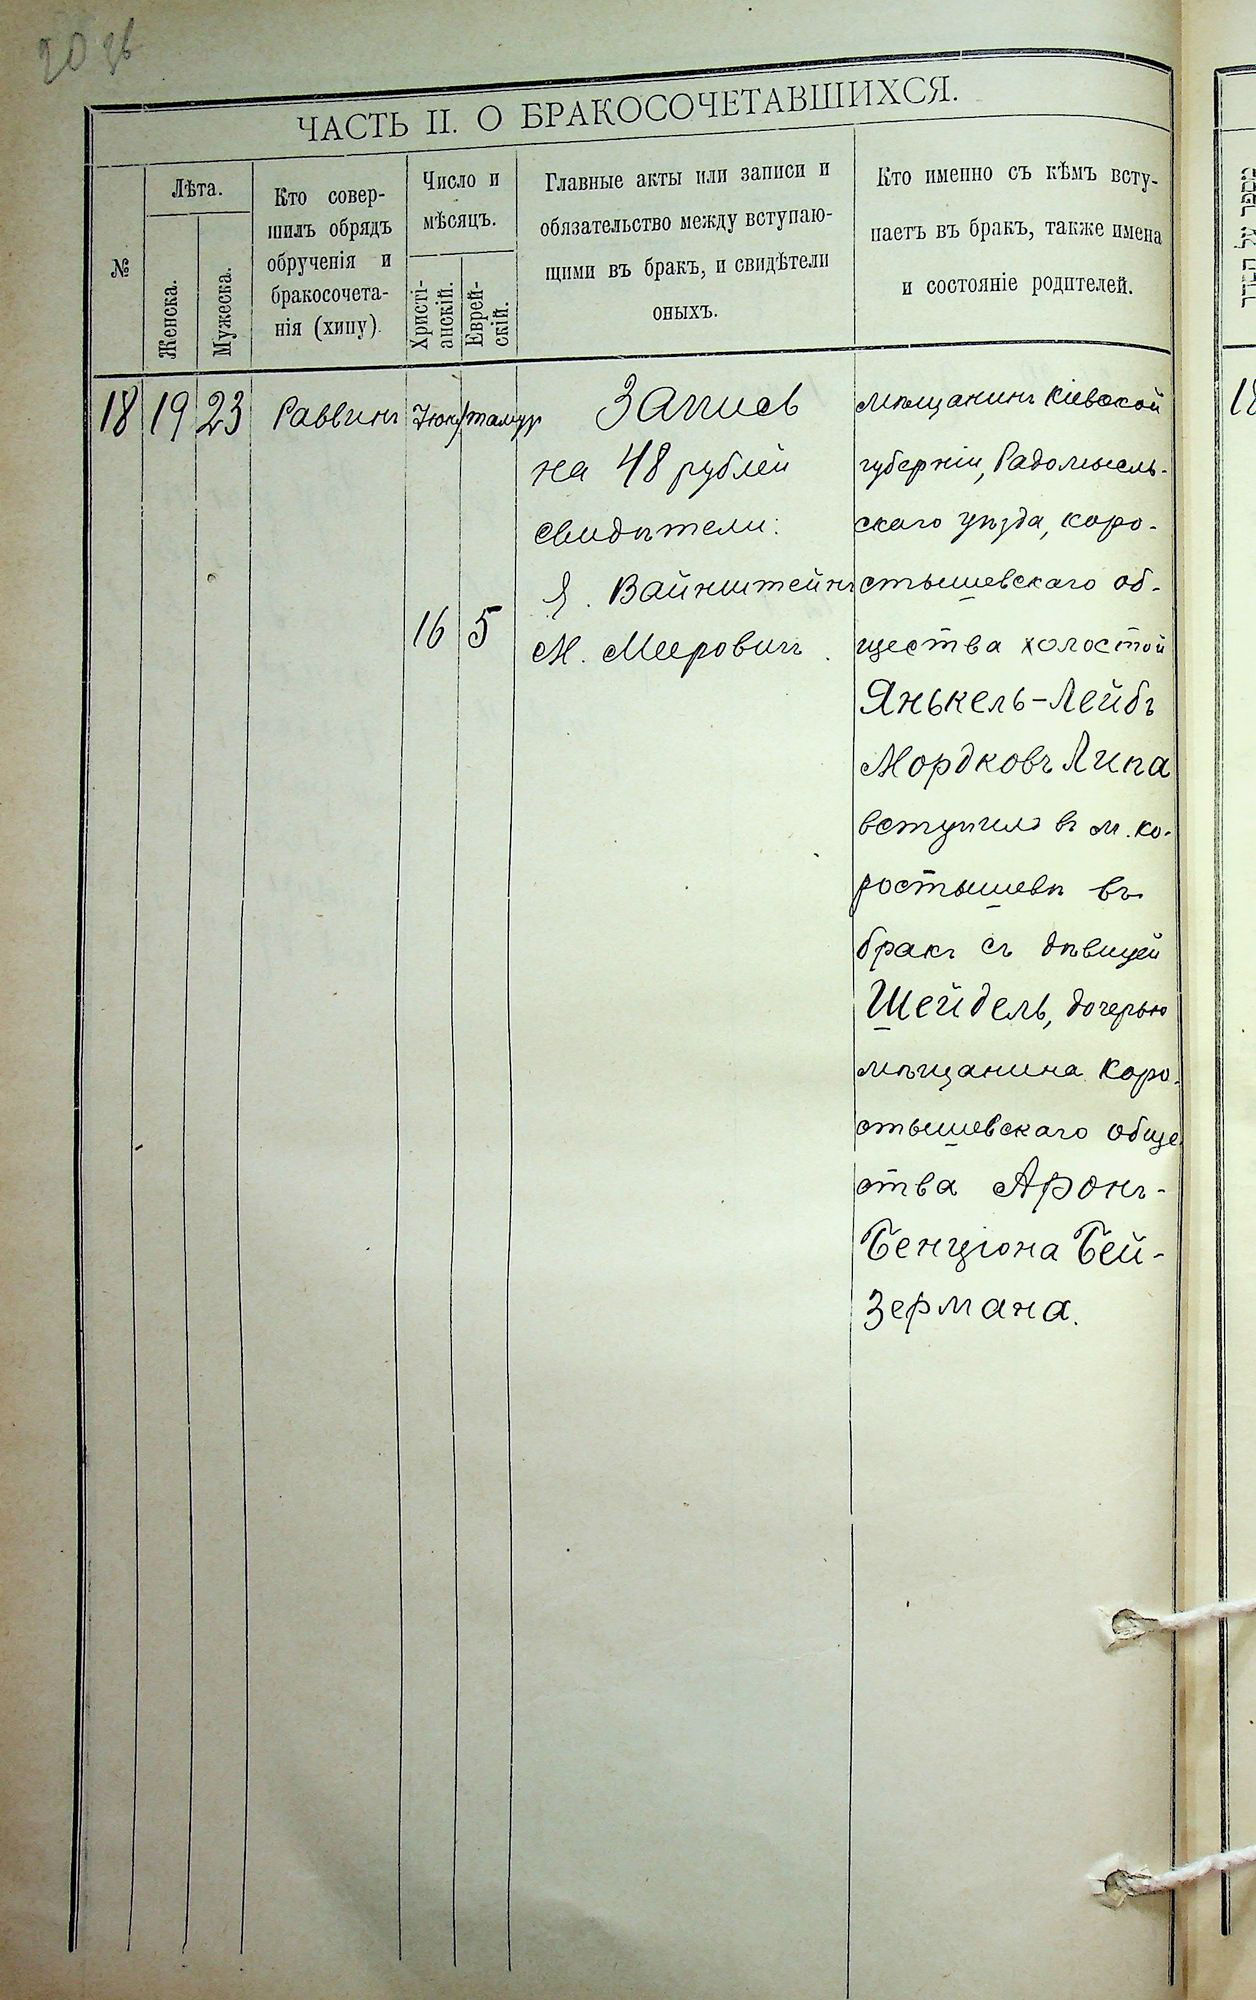 20 зв
ЧАСТЬ II. О БРАКОСОЧЕТАВШИХСЯ.
№
Лѣта.
Женска.
Мужеска.
Кто совер-
шилъ обрядъ
обрученія и
бракосочета-
нія (хипу).
Число и
мѣсяцъ.
Христі-
анскій.
Еврей-
скій.
Главные акты или записи и
обязательство между вступаю-
щими въ бракъ, и свидѣтели
оныхъ.
Кто именно съ кѣмъ всту-
паетъ въ бракъ, также имена
и состояніе родителей.
18
19
23
Раввинъ
тамуз
16
5
Запись
на 48 рублей
свидѣтели:
Я. Вайнштейнъ
М. Мееровичъ.
мѣщанинъ Кіевской
губерніи, Радомысль-
скаго уѣзда, коро-
стышевскаго об-
щества холостой
Янькель-Лейбъ
Мордковъ Липа
вступилъ въ м. Ко-
ростышевѣ въ
бракъ съ дѣвицей
Шейдель, дочерью
мѣщанина Коро-
стышевскаго обще-
ства Аронъ-
Бенціона Бей-
зермана.
18